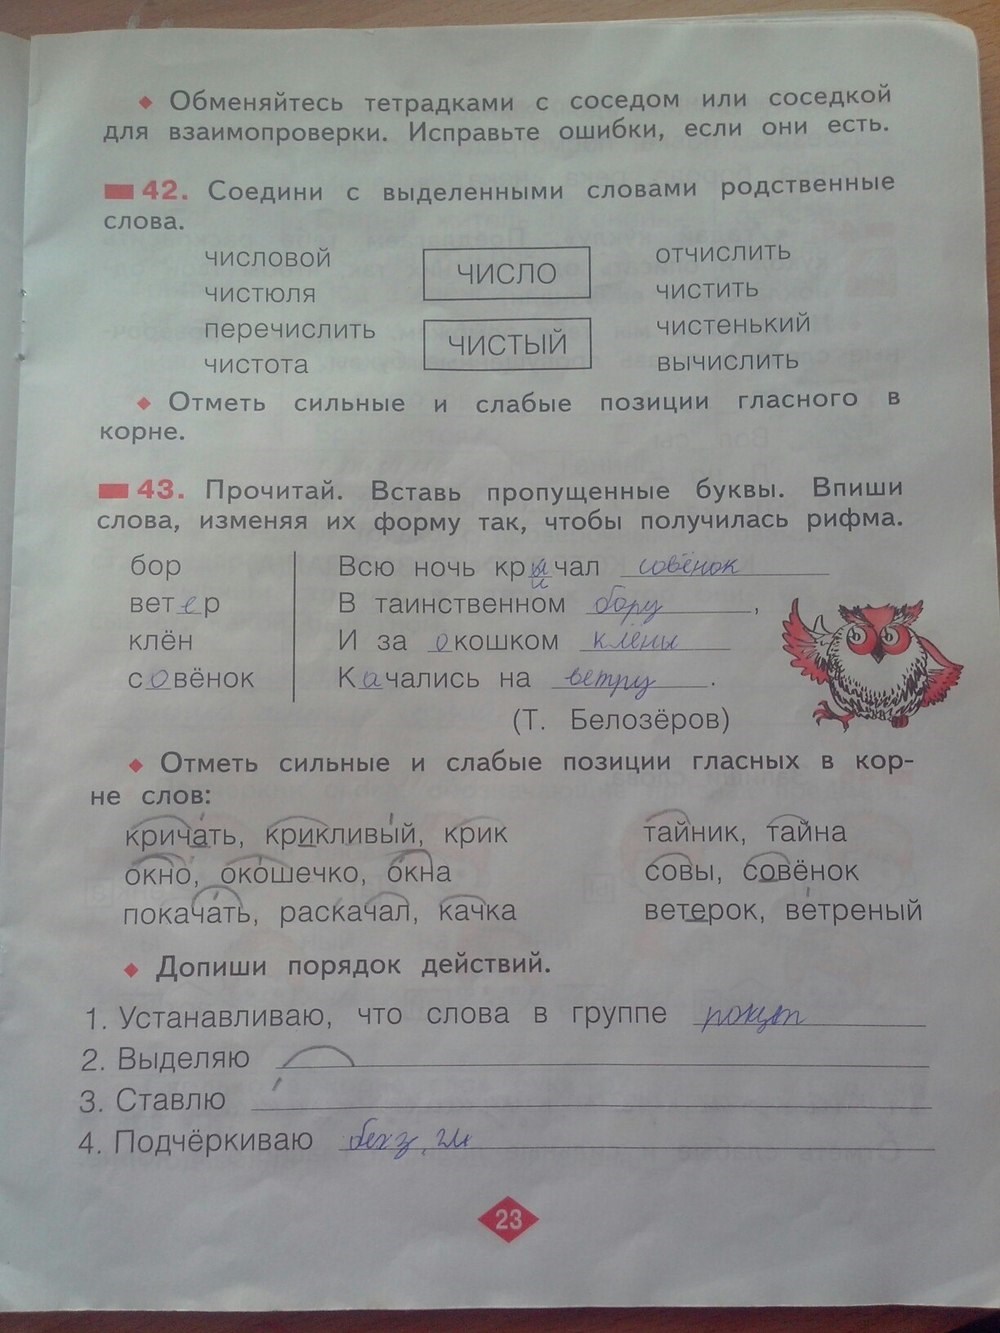 Обменяйтесь тетрадками с соседом или соседкой
для взаимопроверки. Исправьте ошибки, если они есть.
42. Соедини с выделенными словами родственные
слова.
числовой ЧИСЛО отчислить
чистюля чистить
перечислить ЧИСТЫЙ чистенький
чистота вычислить
Отметь сильные и слабые позиции гласного в
корне.
43. Прочитай. Вставь пропущенные буквы. Впиши
слова, изменяя их форму так, чтобы получилась рифма.
бор Всю ночь кричал совёнок
ветер В таинственном бору,
клён И за окошком клёны
совёнок Качались на ветру.
(Т. Белозёров)
Отметь сильные и слабые позиции гласных в кор-
не слов:
кричать, крикливый, крик тайник, тайна
окно, окошечко, окна совы, совёнок
покачать, раскачал, качка ветерок, ветреный
Допиши порядок действий.
1. Устанавливаю, что слова в группе
2. Выделяю
3. Ставлю
4. Подчёркиваю
23